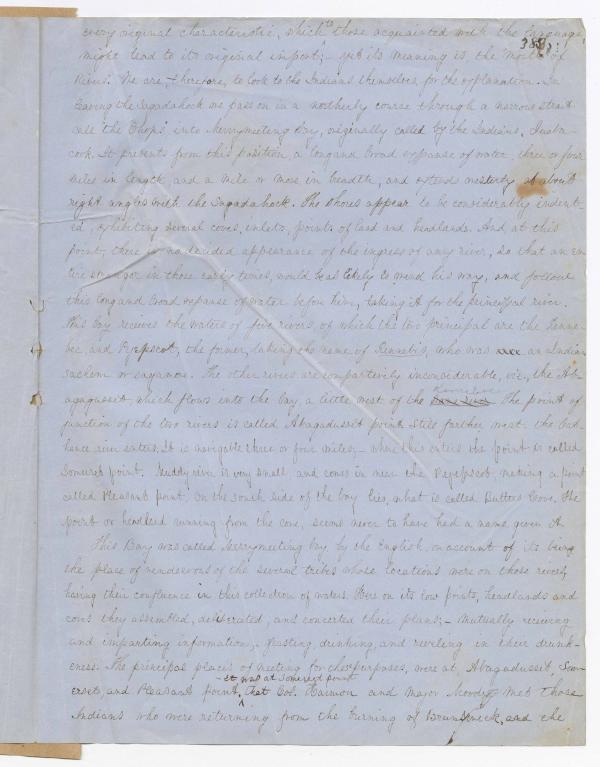 388:
every original characteristic, which to those acquainted with the language,
might lead to its original import; - yet its meaning is, the mouth of
rivers. We are, therefore, to look to the Indians themselves for the explanation. In
leaving the Sagadahock we pass on in a northerly course through a narrow strait
call the Chops into Merrymeeting bay, originally called by the Indians,
cook. It presents from this position, a long and broad expanse of water, three or four
miles in length, and a mile or more in breadth, and extends westerly at about
right angles with the Sagadahock. The shores appear to be considerably indent-
ed, exhibiting several coves, inlets, points of land and headlands. And at this
point, there is no decided appearance of the ingress of any river, so that an en-
tire stranger in those early times, would be as likely to wend his way, and follow
this long and broad expanse of water before him, taking it for the principal river.
This bay receives the waters of five rivers, of which the two principal are the Kenne-
bec, and Pejepscot, the former, taking the name of Kennebis, who was an Indian
sachem or sagamore. The other rivers are compartively inconsiderable, viz, the Ab-
agagusset, which flows into the bay, a little west of the Kennebec The point of
junction of the two rivers is called Abagadusset point. Still farther west, the Cat-
hance river enters. It is navigable three or four miles; - where this enters the point is called
Somerset point. Muddy river is very small and comes in near the Pejepscot, making a point
called Pleasant point. On the south side of the bay lies, what is called Butlers Cove. The
point or headland running from the cove, seems never to have had a name given it.
This Bay was called Merrymeeting bay by the English, on account of its being
the place of rendezvous of the several tribes whose locations were on those rivers,
having their confluence in this collection of waters. Here on its low points, headlands and
coves they assembled, deliberated, and concerted their plans; - mutually receiving
and imparting information, - feasting, drinking, and reveling in their drunk-
eness. The principal places of meeting for these purposes, were at Abagadusset, Som-
erset, and Pleasant point,
- it was at Somerset point
that Col. Harmon and major Moody met those
Indians who were returning from the burning of Brunswick, and the